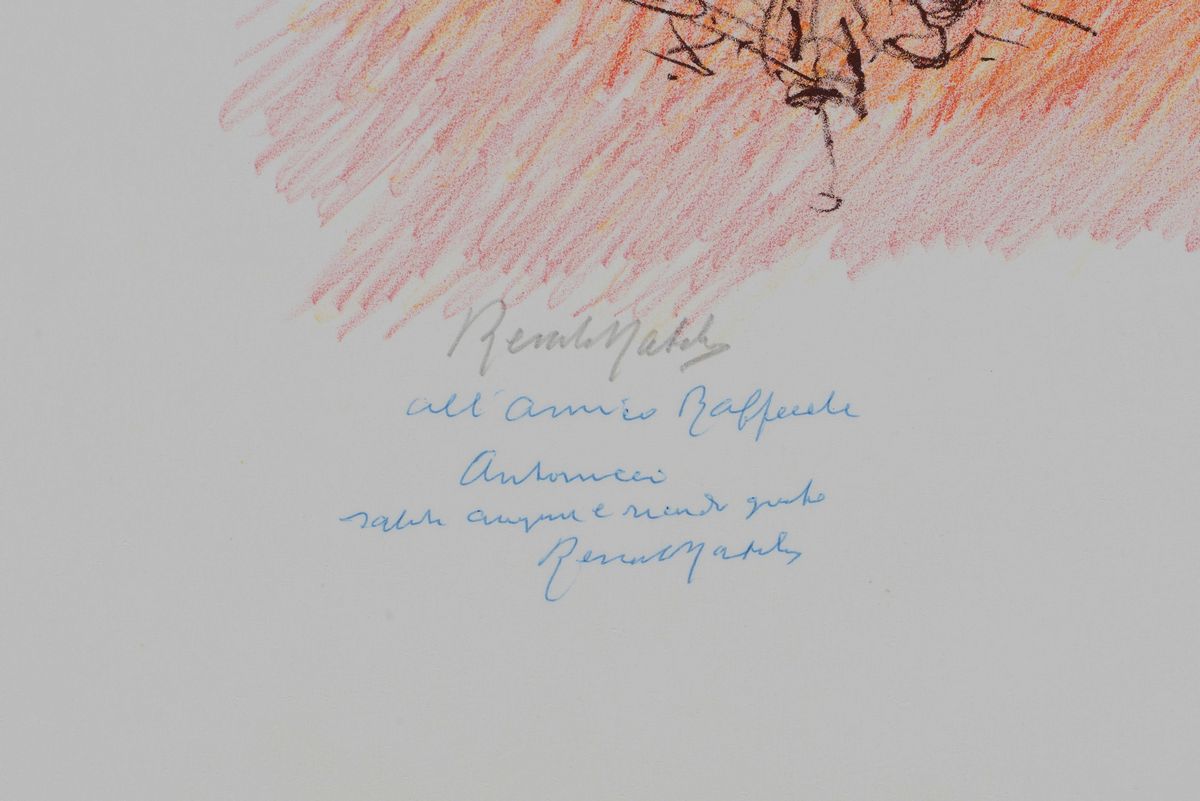 Renato Natali
all'amico Raffaele
Antonucci
salute auguri e
Renato Natali